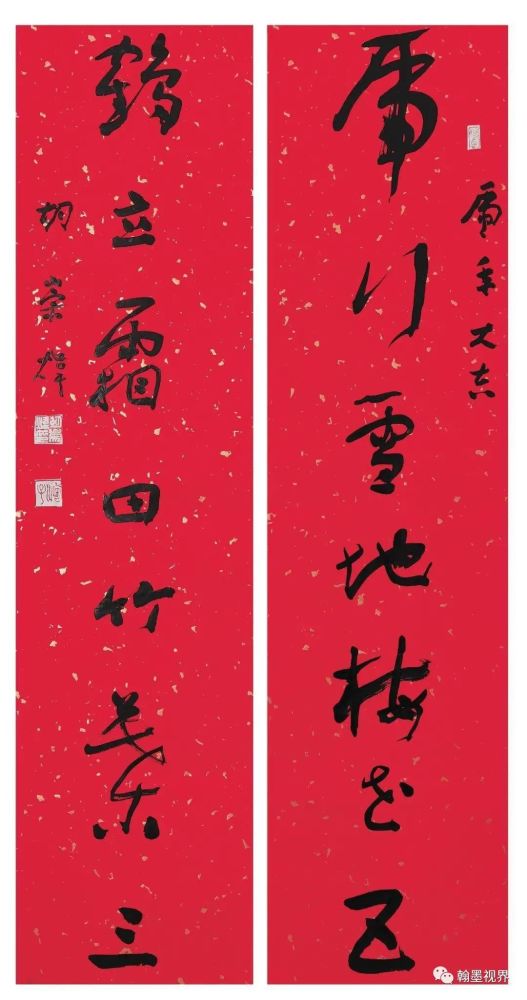 虎年大吉
虎行雪地梅花五
鶴立霜田竹葉三
胡崇煒
翰墨视界